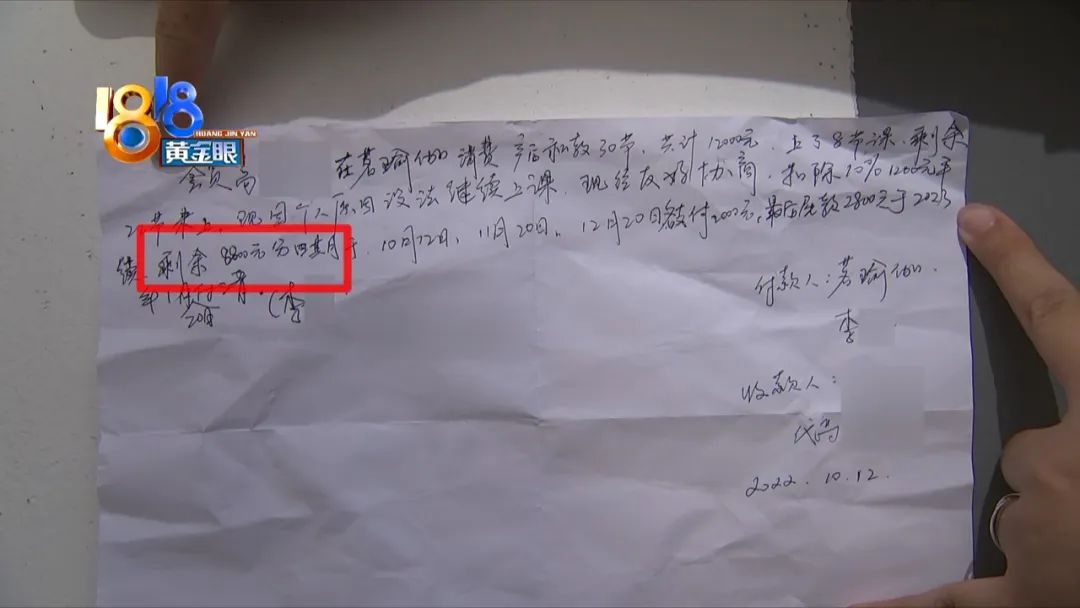 1818
HUANG JIN YAN
黄金眼
会员尚
在若瑜伽消费产后私教30节,共计12000元,上了8节课,剩余
22节未上,现因个人原因没法继续上课,现经友好协商,扣除10%1200元手
续,剩余8800元分四期月于,10月12日,11月20日,12月20日各付2000元,最后尾款2800元于2023
年1月付清。(李
20日
付款人:若瑜伽.
李
收款人:
代尚
2022.10.12.